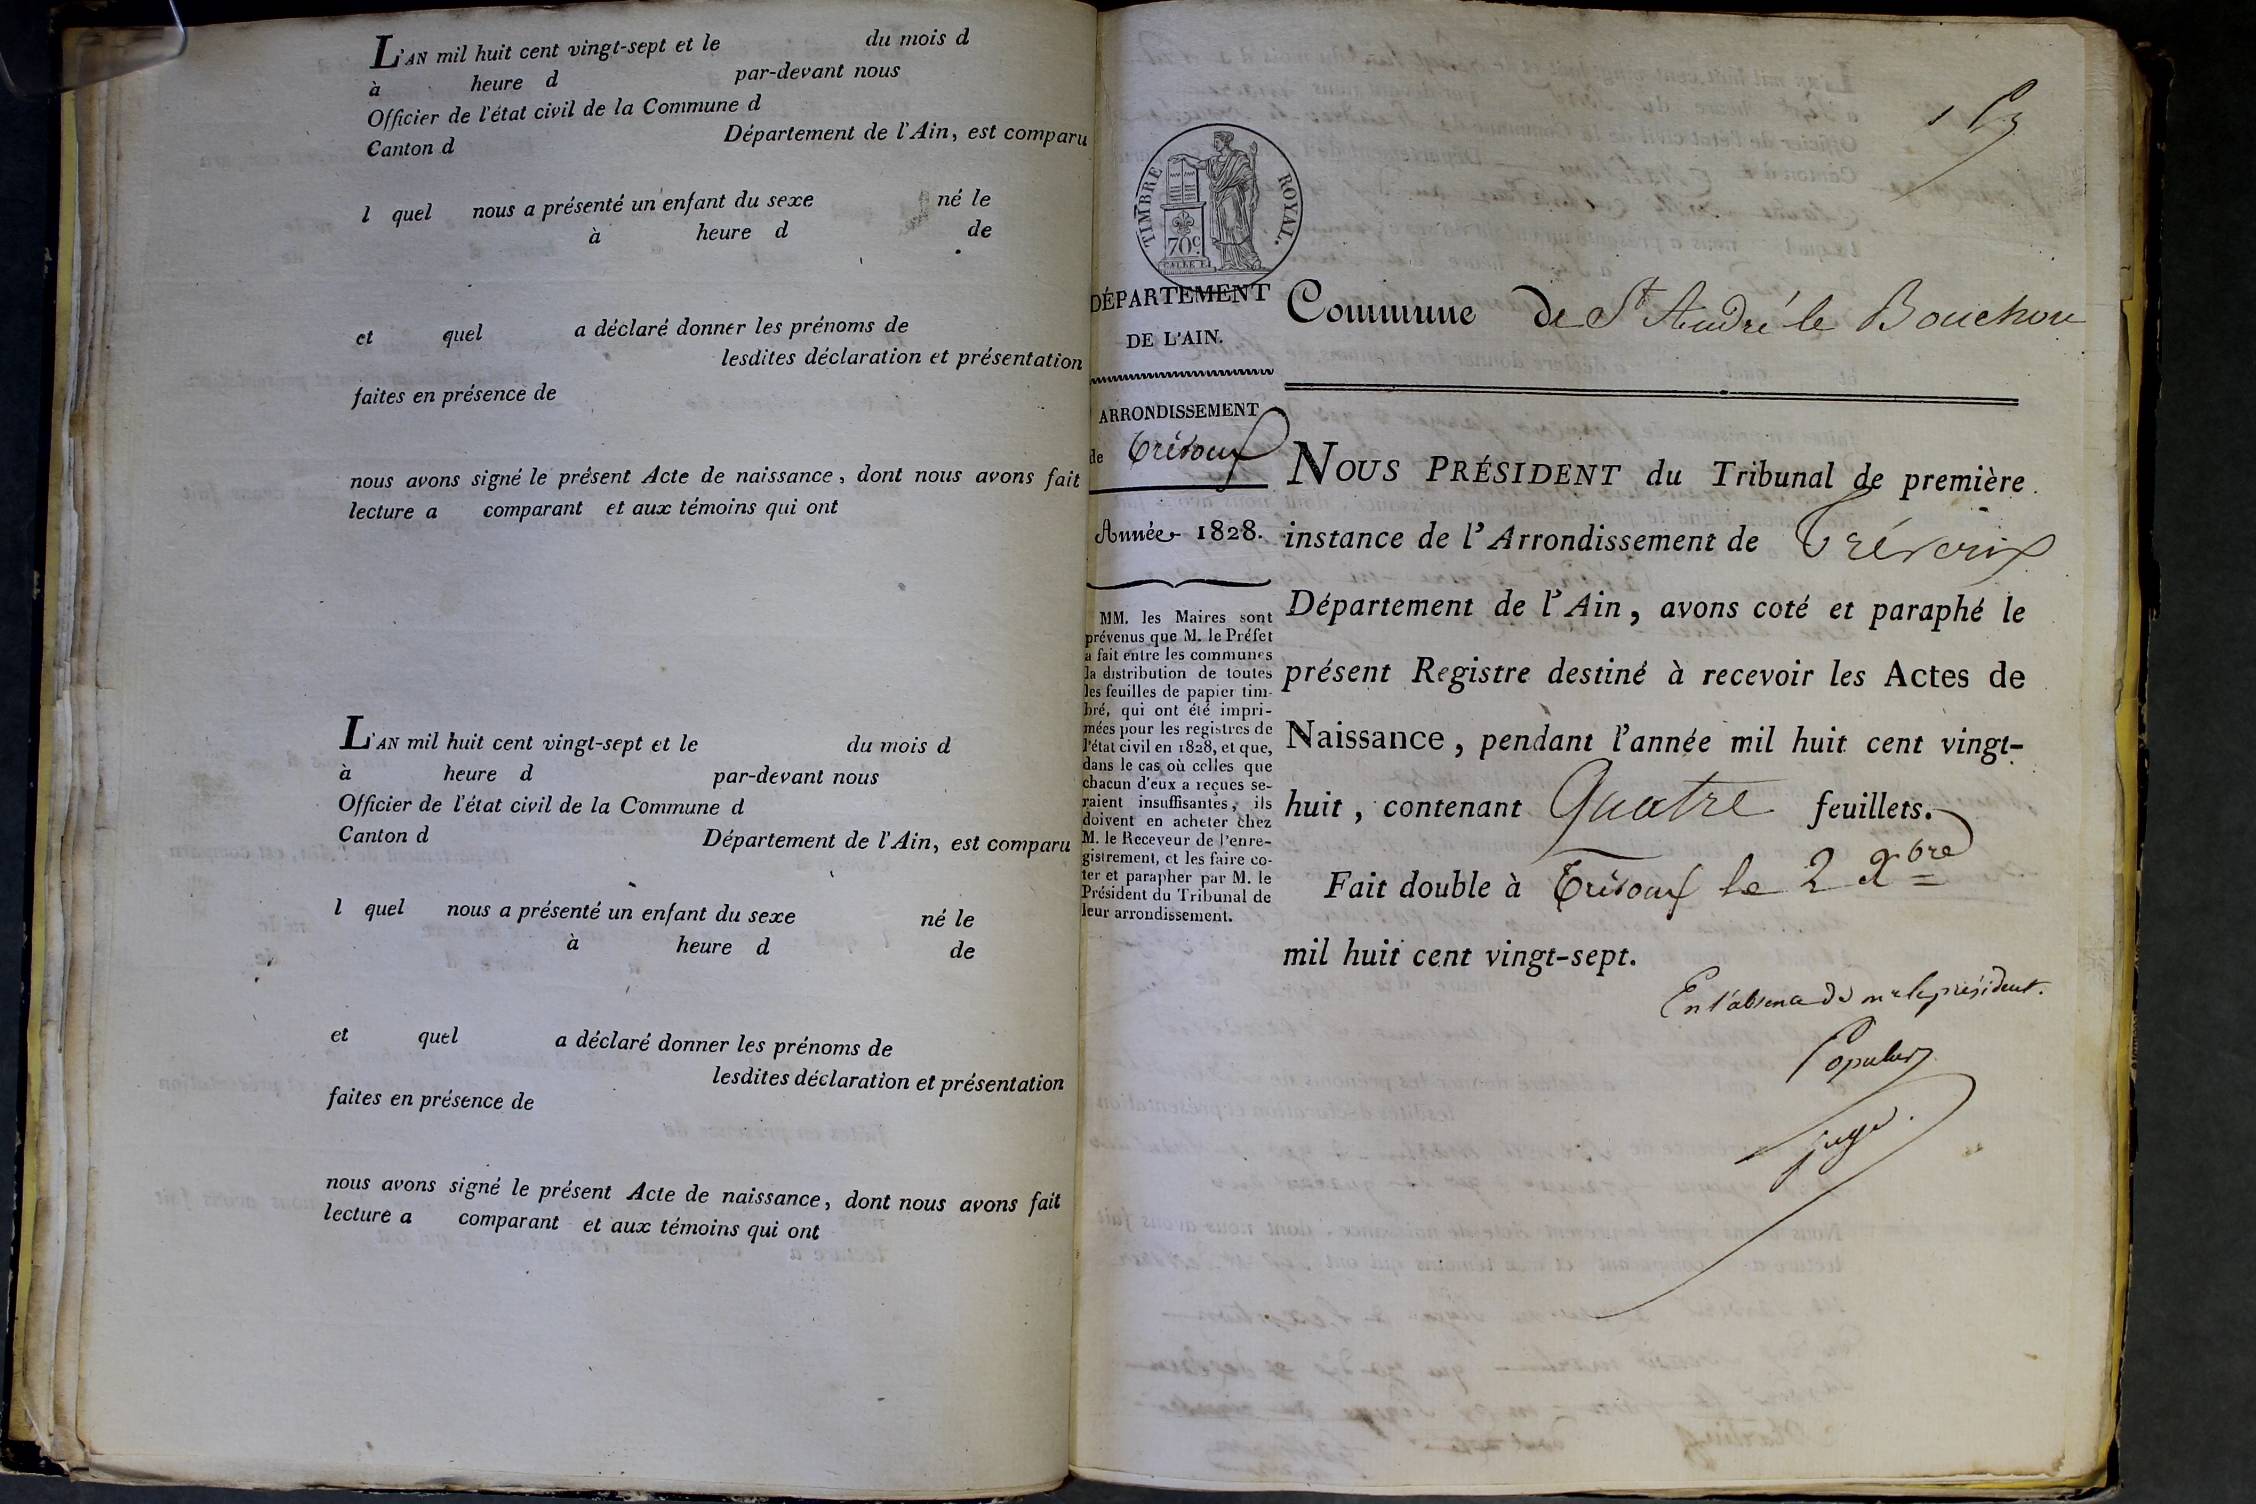 L'AN mil huit cent vingt-sept et le du mois d
à heure d par-devant nous
Officier de l'état civil de la Commune d
Canton d Département de l'Ain, est comparu
l quel nous a présenté un enfant du sexe né le
à heure d de
et quel a déclaré donner les prénoms de
lesdites déclaration et présentation
faites en présence de
nous avons signé le présent Acte de naissance, dont nous avons fait
lecture a comparant et aux témoins qui ont
L'AN mil huit cent vingt-sept et le du mois d
à heure d par-devant nous
Officier de l'état civil de la Commune d
Canton d Département de l'Ain, est comparu
l quel nous a présenté un enfant du sexe né le
à heure d de
et quel a déclaré donner les prénoms de
lesdites déclaration et présentation
faites en présence de
nous avons signé le présent Acte de naissance, dont nous avons fait
lecture a comparant et aux témoins qui ont
TIMBRE ROYAL.
70 c.
DÉPARTEMENT
DE L'AIN.
ARRONDISSEMENT
de Trévoux
Année 1828.
MM. les Maires sont
prévenus que M. le Préfet
a fait entre les communes
la distribution de toutes
les feuilles de papier tim-
bré, qui ont été impri-
mées pour les registres de
l'état civil en 1828, et que,
dans le cas où celles que
chacun d'eux a reçues se-
raient insuffisantes, ils
doivent en acheter chez
M. le Receveur de l'enre-
gistrement, et les faire co-
ter et parapher par M. le
Président du Tribunal de
leur arrondissement.
Commune de St André le Bouchou
NOUS PRÉSIDENT du Tribunal de première
instance de l'Arrondissement de Trévoux
Département de l'Ain, avons coté et paraphé le
présent Registre destiné à recevoir les Actes de
Naissance, pendant l'année mil huit cent vingt-
huit, contenant Quatre feuillets.
Fait double à Trévoux le 2 Xbre
mil huit cent vingt-sept.
En l'absence de mr le président.
juge.